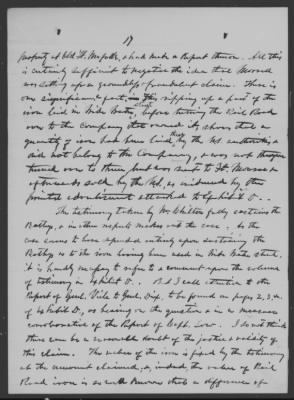 17
property at Old Ft. Norfolk, & had made a Report thereon. All this
is certainly sufficient to negative the idea that Morse
was setting up a groundless fraudulent claim. There is
one significant fact, in this ripping up a part of the
iron laid in Side Tracks, before turning the Rail Road
over to the Company that owned it, shows that a
quantity of iron had been laid by the authorities &
did not belong to the Company, & was not
turned over to them but was sent to Ft. Monroe &
afterwards sold by the as evidenced by the
printed advertisement attached to Exhibit D.
The testimony taken by Mr. Whiting fully sustains the
& in other respects makes out the case. As the
case seems to have depended entirely upon sustaining the
as to the iron having been used in Side Tracks &c.
it is hardly necy. to refer to & comment upon the volume
of testimony in Exhibit D. But I call attention to the
Report of Genl. to Genl. to be found on pages 2, 3, &
of Exhibit D, as bearing on the question & in a measure
corroborative of the Report of Capt. I do not think
there can be a reasonable doubt of the justice & validity of
this claim. The value of the iron is fixed by the testimony
at the amount claimed, & indeed the value of Rail
Road iron is so well known that a difference of